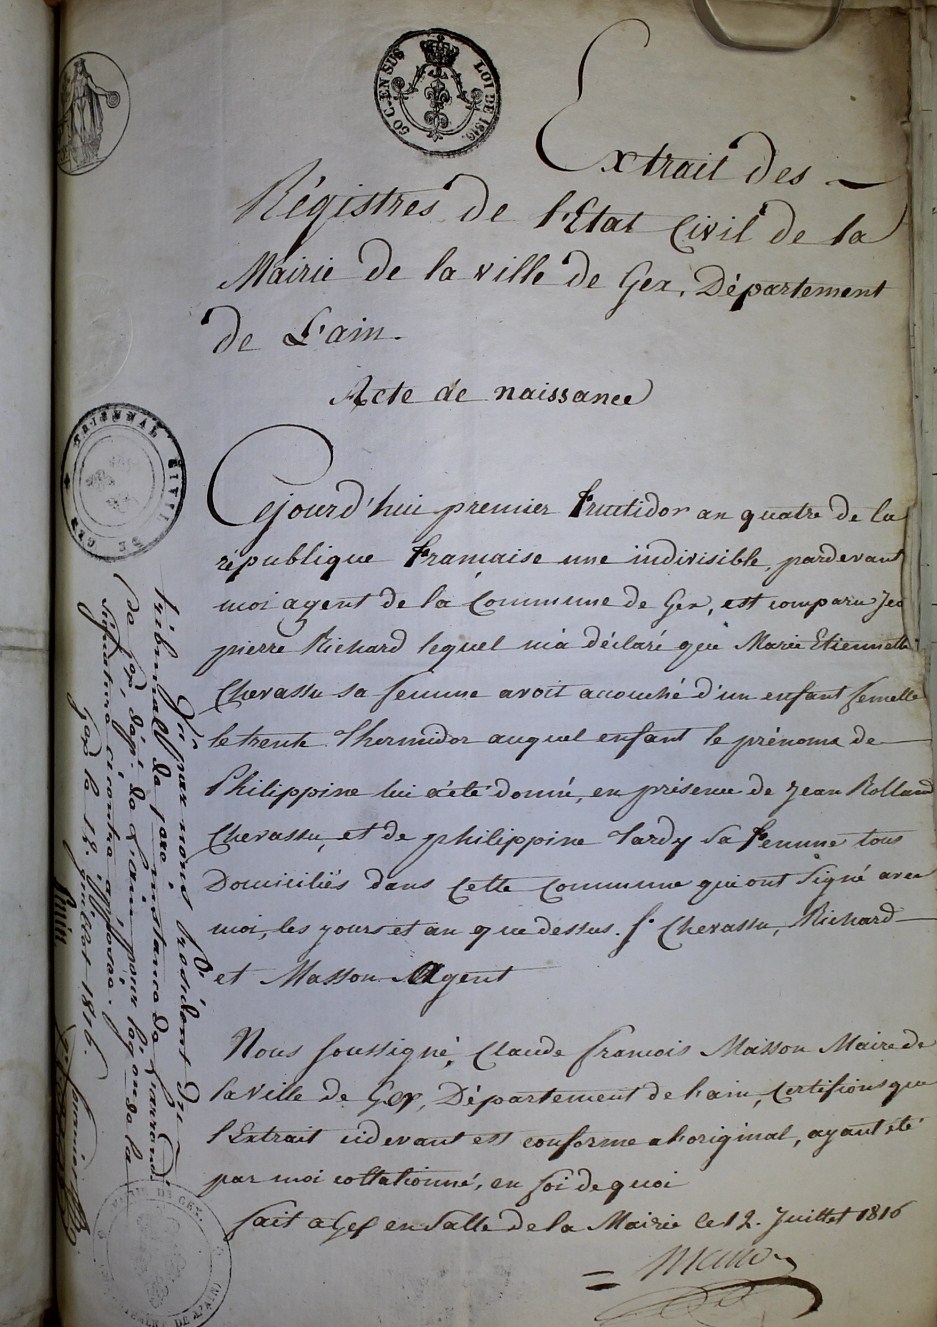 50 C. EN SUS
LOI DE 1816.
Extrait des
Régistres de l'Etat Civil de la
Mairie de la ville de Gex, Département
de L'ain.
Acte de naissance
Cejourd'hui premier fructidor an quatre de la
république francaise une indivisible, pardevant
moi agent de la Commune de Gex, est comparu Jea
pierre Richard lequel m'a déclaré que Marie Etiennette
Chevassu sa femme avoit accouché d'un enfant femelle
le trente Thermidor auquel enfant le prénoms de
Philippine lui a été donné, en présence de Jean Rolland
Chevassu, et de philippine Tardy sa femme tous
Domiciliés dans Cette Commune qui ont signé avec
moi, les jours et an que dessus. Chevassu, Richard
et Masson Agent
Nous soussigné, Claude francois Masson Maire de
la ville de Gex, Département de l'ain, Certifions que
l'Extrait cidevant est conforme a l'original, ayant été
par moi collationné, en foi de quoi
fait a Gex en Salle de la Mairie le 12. Juillet 1816
TRIBUNAL CIVIL DE GEX
Vu par nous président du
tribunal de 1ere instance de l'arrond.
de Gex, dépt. de l'ain pour légon. de la
Signature cicontre apposée.
Gex le 12. juillet 1816.
MAIRIE DE GEX.